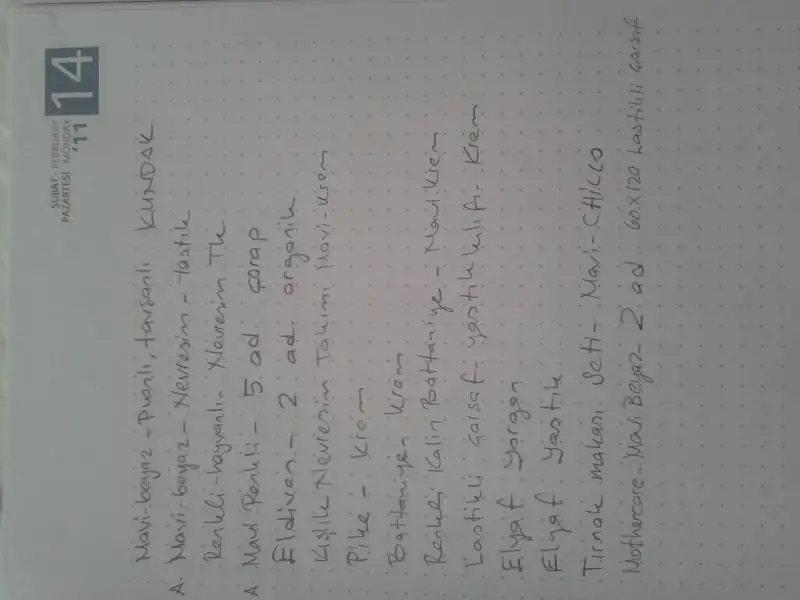 14
ŞUBAT FEBRUARY
PAZARTESİ MONDAY
'11
Mavi-beyaz - Puanlı, tavşanlı KUNDAK
A. Mavi-beyaz - Nevresim - Yastık
Renkli-hayvanlı - Nevresim Tk
A Mavi Renkli - 5 ad çorap
Eldiven - 2 ad. organik
Kışlık Nevresim Takımı Mavi-Krem
Pike - Krem
Battaniye - Krem
Renkli Kalın Battaniye - Mavi Krem
Lastikli çarşaf - yastık kılıfı - Krem
Elyaf Yorgan
Elyaf Yastık
Tırnak makası Seti - Mavi - CHICCO
Mothercare - Mavi Beyaz - 2 ad 60x120 Lastikli çarşaf